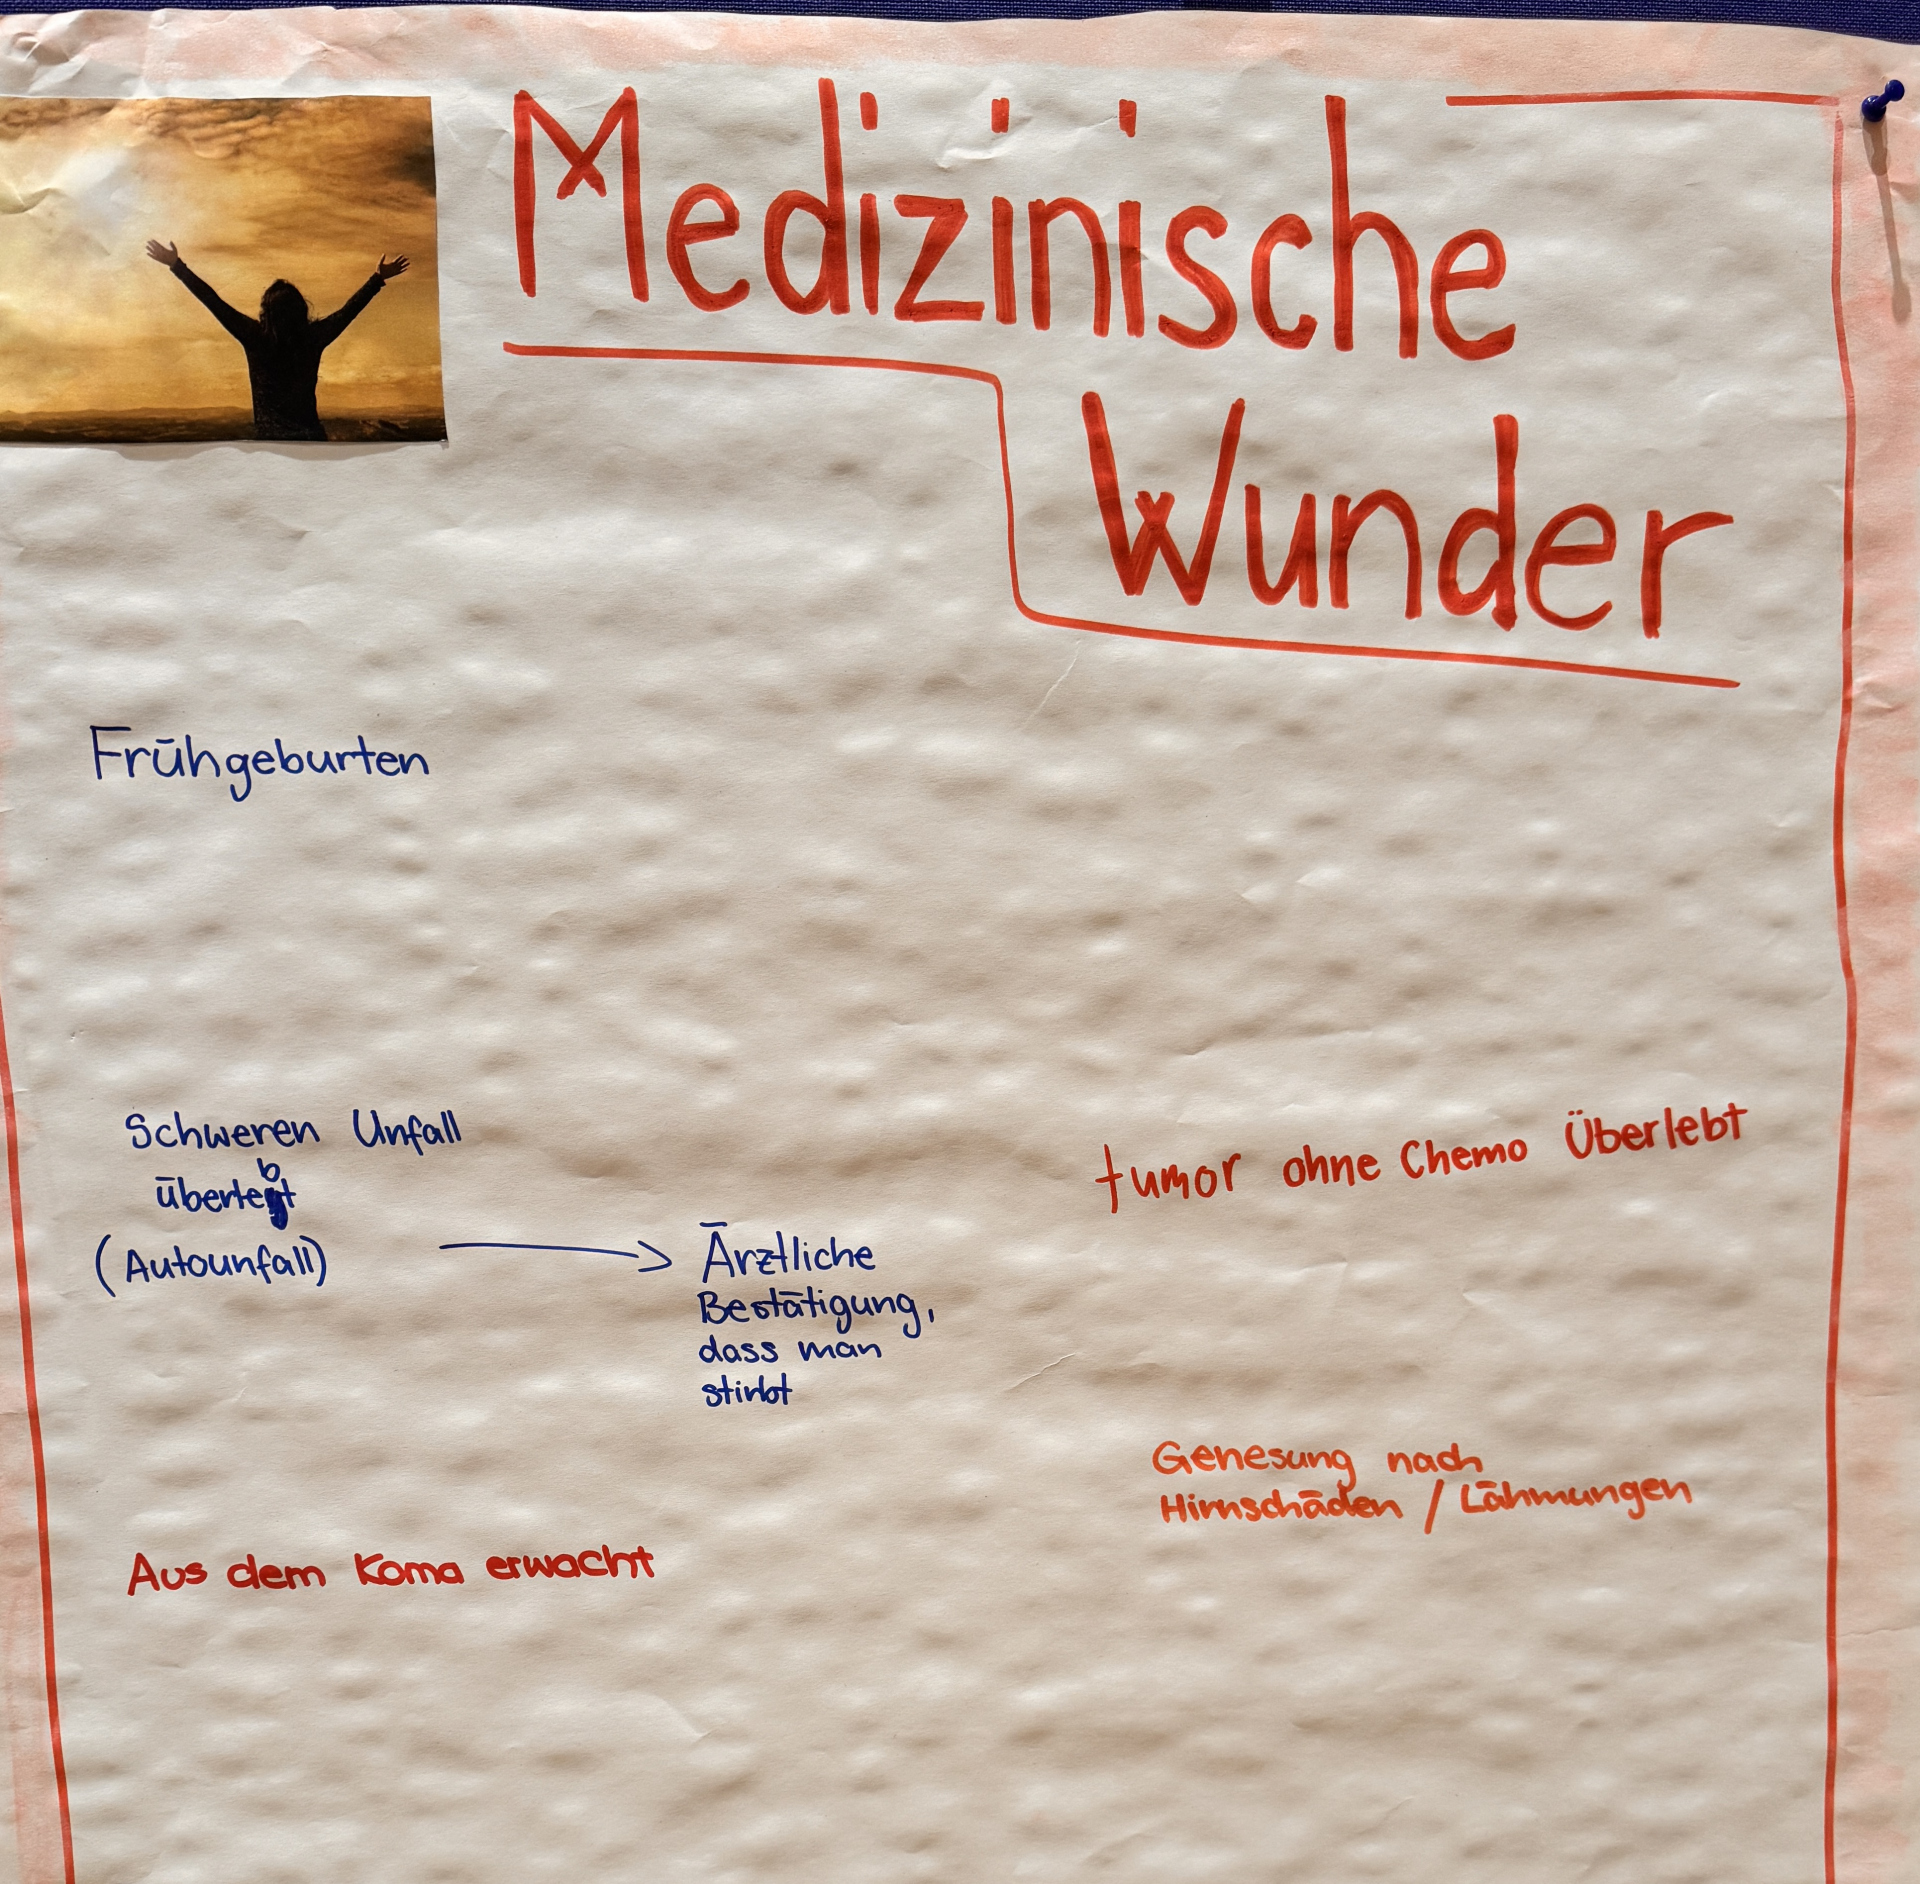 Medizinische
Wunder
Frühgeburten
Schweren Unfall
überlebt
(Autounfall)
Ärztliche
Bestätigung,
dass man
stirbt
tumor ohne Chemo Überlebt
Genesung nach
Hirnschäden / Lähmungen
Aus dem Koma erwacht